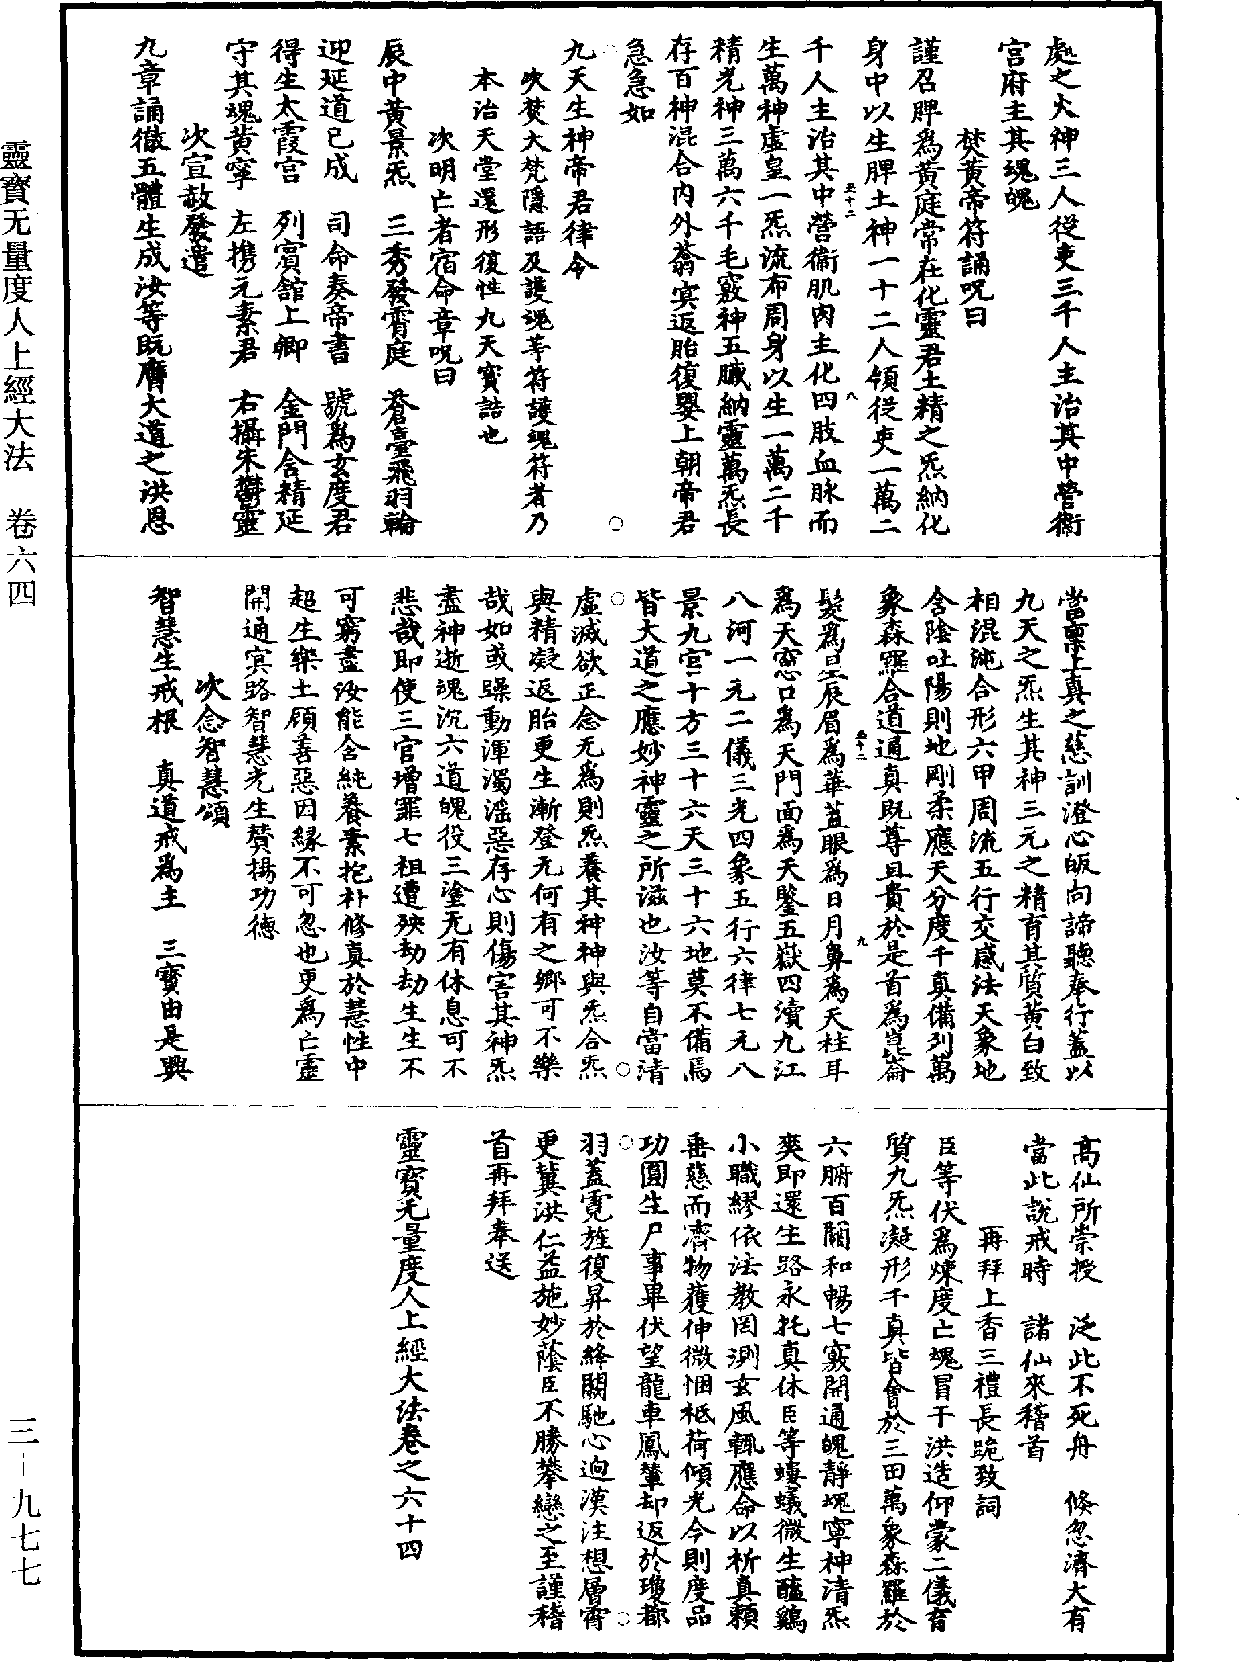 靈寶无量度人上經大法　卷六四
三－九七七
處之大神三人從吏三千人主治其中營衛
宮府主其魂魄
焚黃帝符誦呪曰
謹召脾爲黃庭常在化靈君土精之炁納化
身中以生脾土神一十二人領從吏一萬二
千人主治其中營衛肌肉主化四肢血脉而
五十二　八
生萬神虛皇一炁流布周身以生一萬二千
精光神三萬六千毛竅神五臟納靈萬炁長
存百神混合內外翕㝠返胎復嬰上朝帝君
急急如
九天生神帝君律令
次焚大梵隱語及護魂等符護魂符者乃
本治天堂還形復性九天寳誥也
次明亡者宿命章呪曰
辰中黃景炁　三秀發霄庭　蒼臺飛羽輪
迎延道已成　司命奏帝書　號爲玄度君
得生太霞宮　列賓舘上卿　金門含精延
守其魂黄寧　左携元素君　右攝朱鬱靈
次宣赦發遣
九章誦徹五體生成汝等既膺大道之洪恩
當禀上真之慈訓澄心皈向諦聽奉行蓋以
九天之炁生其神三元之精育其質黃白致
相混沌合形六甲周流五行交感法天象地
含陰吐陽則地剛柔應天分度千真備列萬
象森羅合道通真既尊且貴於是首爲崑崙
髮爲星辰眉爲華蓋眼爲日月鼻爲天柱耳
五十二　九
爲天窓口爲天門面爲天鑒五嶽四瀆九江
八河一元二儀三光四象五行六律七元八
景九宮十方三十六天三十六地莫不備焉
皆大道之應妙神靈之所滋也汝等自當清
虛滅欲正念无爲則炁養其神神與炁合炁
與精凝返胎更生漸登无何有之鄉可不樂
哉如或躁動渾濁淫惡存心則傷害其神炁
盡神逝魂沉六道魄役三塗无有休息可不
悲哉即使三官增罪七祖遭殃劫劫生生不
可窮盡汝能含純養素抱朴修真於慧性中
超生樂土頋善惡因緣不可忽也更爲亡靈
開通㝠路智慧光生贊揚功德
次念智慧頌
智慧生戒根　真道戒爲主　三寶由是興
高仙所崇授　泛此不死舟　倐忽濟大有
當此說戒時　諸仙來稽首
再拜上香三禮長跪致詞
臣等伏爲煉度亡魂冒干洪造仰蒙二儀育
質九炁凝形千真皆會於三田萬象森羅於
六腑百關和暢七竅開通魄靜魂寧神清炁
爽即還生路永托真休臣等螻蟻微生醯鷄
小職繆依法教罔測玄風輒應命以祈真頼
垂慈而濟物獲伸微悃祗荷傾光今則度品
功圓生尸事畢伏望龍車鳳輦却返於瓊都
羽蓋霓旌復昇於絳闕馳心逈漢注想層霄
更冀洪仁益施妙蔭臣不勝攀戀之至謹稽
首再拜奉送
靈寳无量度人上經大法卷之六十四